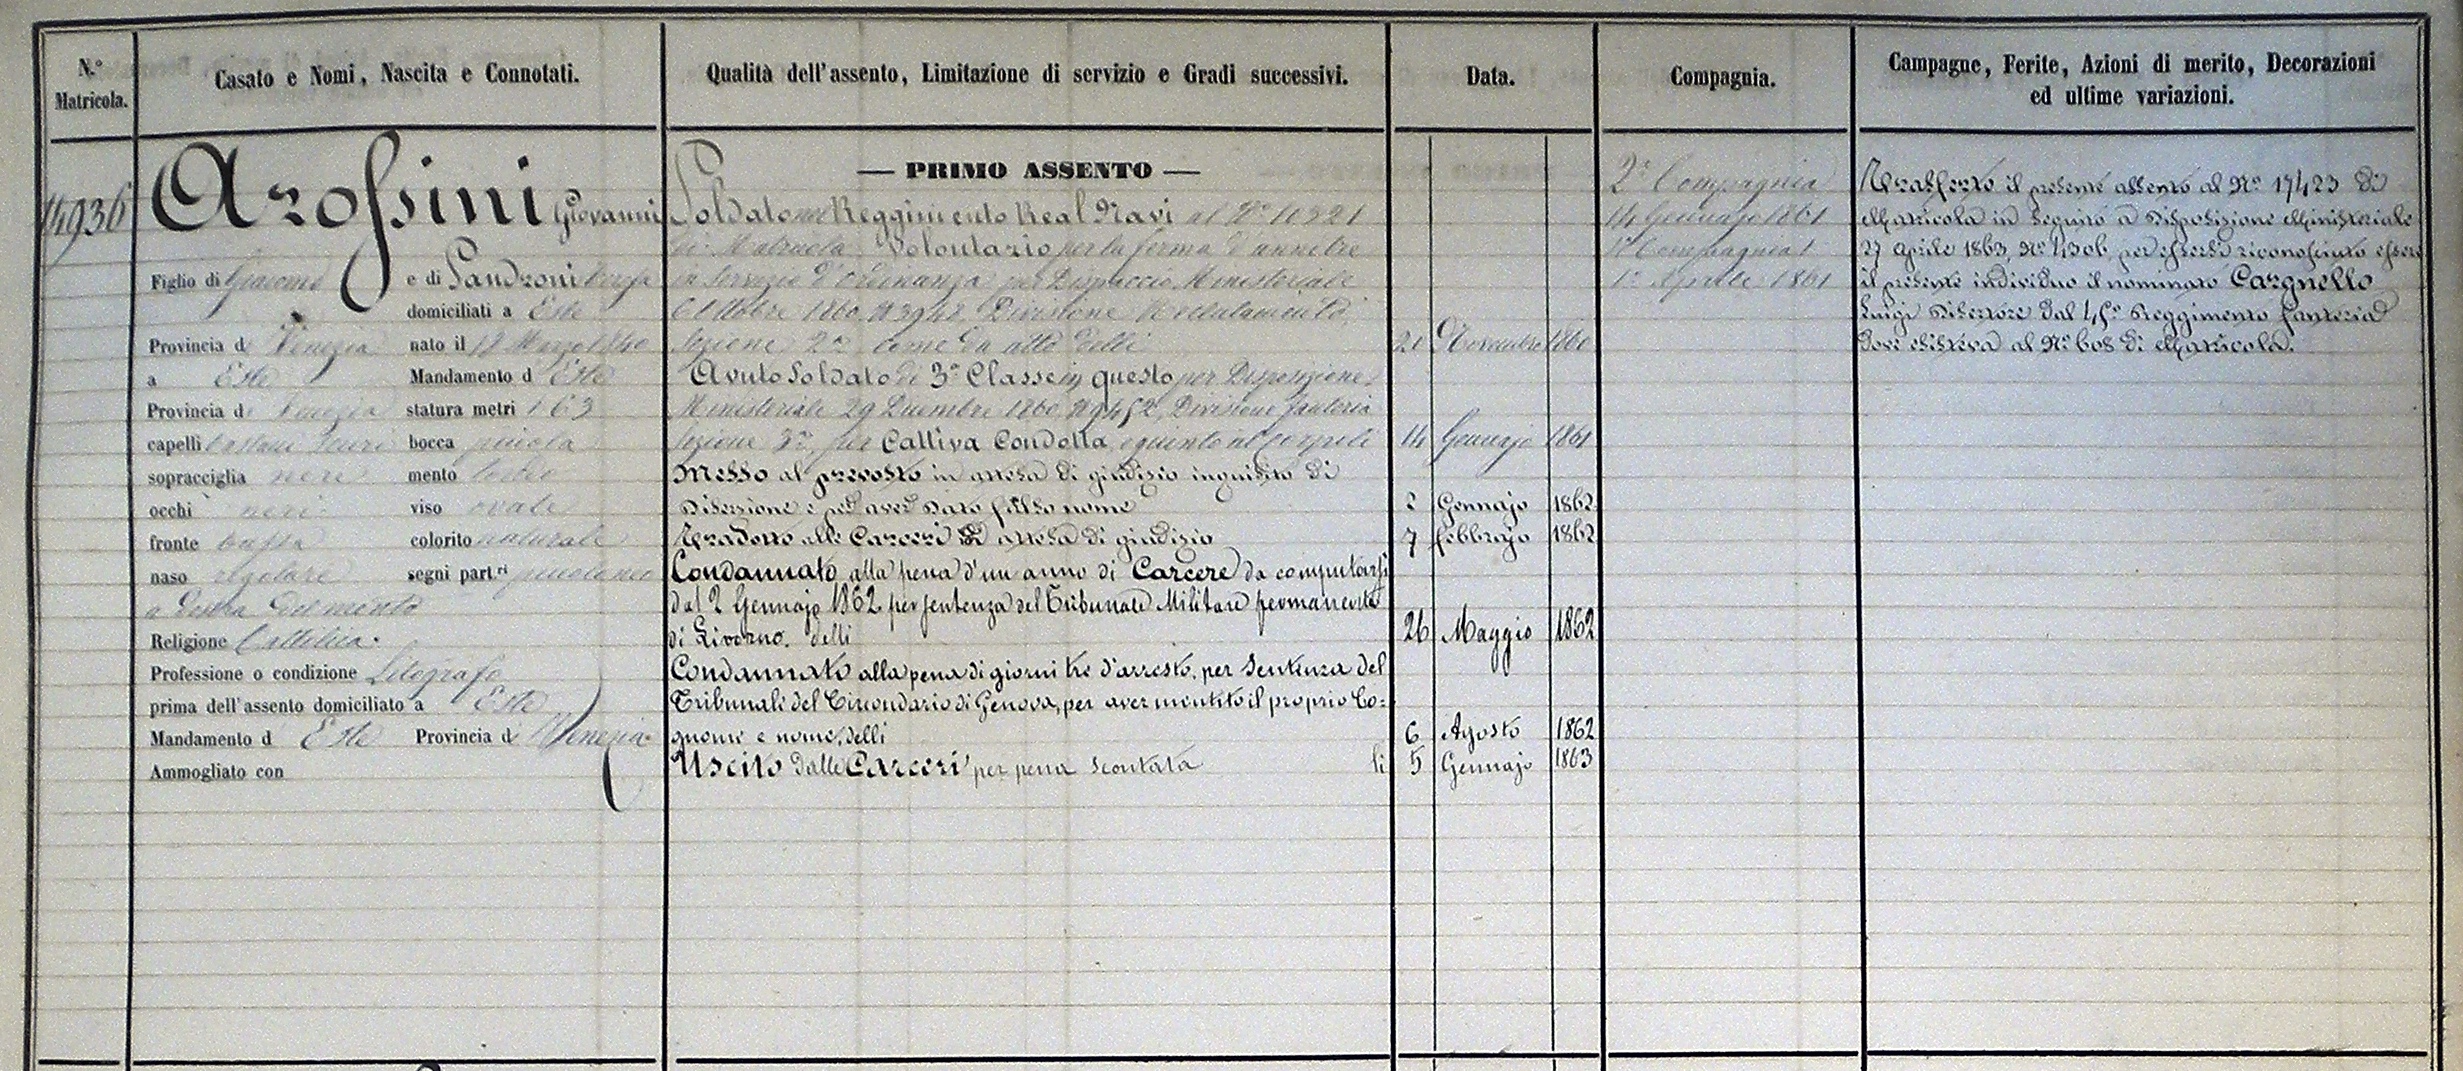 N.º Matricola.
Casato e Nomi, Nascita e Connotati.
Qualità dell'assento, Limitazione di servizio e Gradi successivi.
Data.
Compagnia.
Campagne, Ferite, Azioni di merito, Decorazioni
ed ultime variazioni.
14936
Arossini Giovanni
Figlio di Giacomo e di Sandroni Teresa
domiciliati a Este
Provincia di Venezia nato il 18 Marzo 1840
a Este Mandamento d Este
Provincia di Venezia statura metri 1 63
capelli castani scuri bocca piccola
sopracciglia nere mento tondo
occhi neri viso ovale
fronte bassa colorito naturale
naso regolare segni part.ri piccolo neo
a destra del mento
Religione Cattolica
Professione o condizione Litografo
prima dell'assento domiciliato a Este
Mandamento d Este Provincia di Venezia
Ammogliato con
— PRIMO ASSENTO —
Soldato nel Reggimento Real Navi al Nº 10321
di Matricola Volontario per la ferma d'anni tre
in servizio d'Ordinanza per Dispaccio Ministeriale
6 Ottobre 1860 Nº 3948 Divisione Reclutamento
Sezione 2ª come da atto delli 21 Novembre 1860
Avuto Soldato di 3ª Classe in questo per Disposizione
Ministeriale 29 Dicembre 1860 Nº 9452, Divisione fanteria
Sezione 3ª, per Cattiva Condotta, e giunto al corpo li 14 Gennajo 1861
Messo al prevosto in attesa di giudizio inquisito di
diserzione e per aver dato falso nome 2 Gennajo 1862
Tradotto alle Carceri in attesa di giudizio 7 febbrajo 1862
Condannato alla pena d'un anno di Carcere da computarsi
dal 2 Gennajo 1862 per sentenza del Tribunale Militare permanente
di Livorno. delli 26 Maggio 1862
Condannato alla pena di giorni tre d'arresto, per Sentenza del
Tribunale del Circondario di Genova, per aver mentito il proprio Co=
gnome e nome, delli 6 Agosto 1862
Uscito dalle Carceri per pena scontata li 5 Gennajo 1863
2ª Compagnia
14 Gennajo 1861
1ª Compagnia
1º Aprile 1861
Trasferto il presente assento al Nº 17423 di
Matricola in seguito a disposizione Ministeriale
27 Aprile 1863, Nº 4306, per essersi riconosciuto essere
il presente individuo il nominato Cargnello
Luigi disertore dal 45º Reggimento fanteria
dove esisteva al Nº 608 di Matricola.